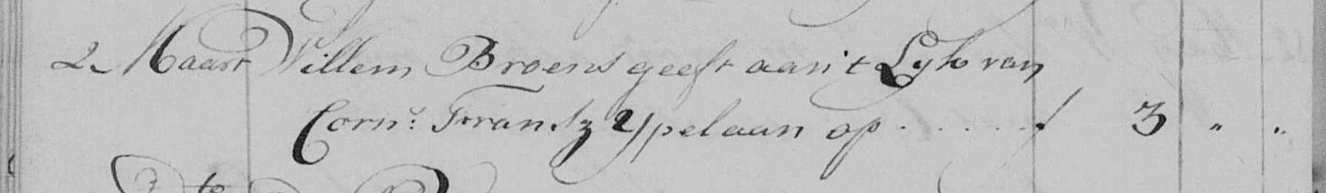 2 Maart Willem Broens geeft aan 't Lyk van
Corn:s Fransz Ypelaan op . . . . . f 3 " "